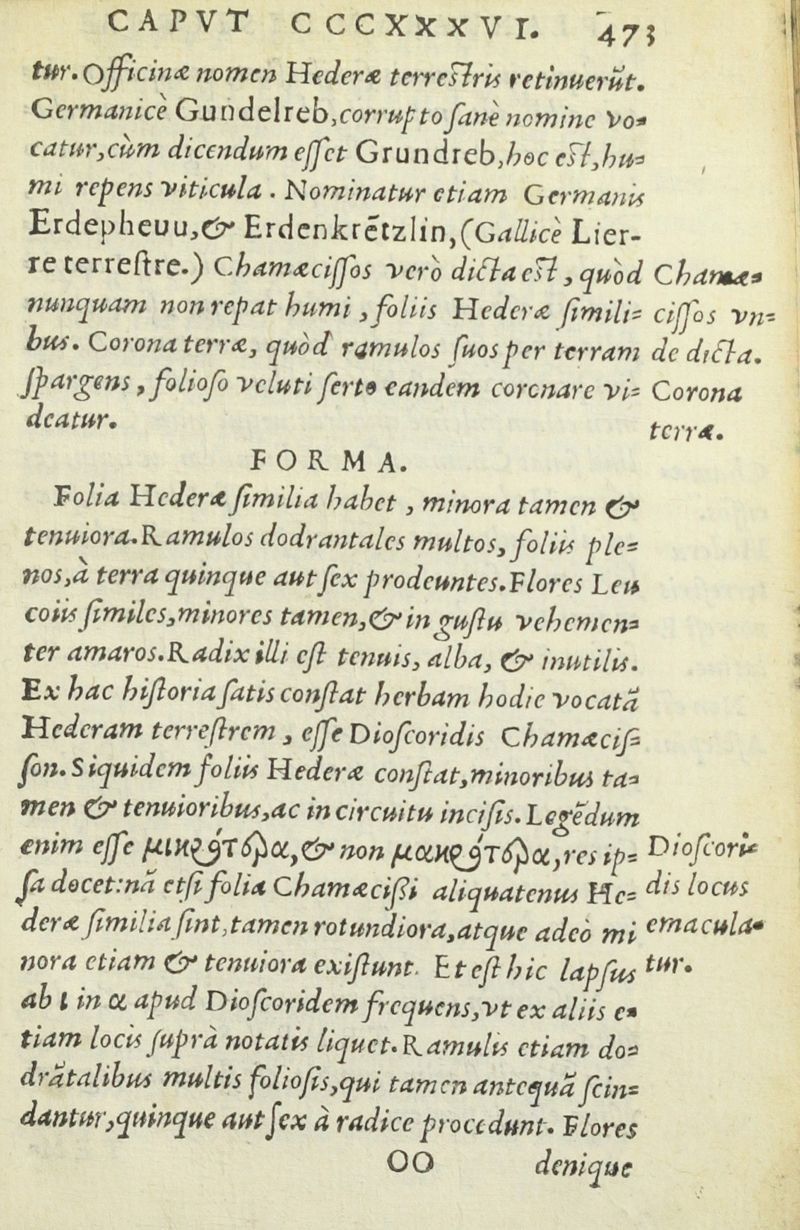 CAPVT CCCXXXVI. 473
tur. Officinæ nomen Hederæ terreſtris retinuerūt.
Germanicè Gundelreb, corrupto ſanè nomine vo-
catur, cùm dicendum eſſet Grundreb, hoc eſt, hu-
mi repens viticula. Nominatur etiam Germanis
Erdepheuu, & Erdenkrētzlin, (Gallicè Lier-
re terreſtre.) Chamæciſſos verò dicta eſt, quòd
nunquam non repat humi, foliis Hederæ ſimili-
bus. Corona terræ, quòd ramulos ſuos per terram
ſpargens, folioſo veluti ſerto eandem coronare vi-
deatur.
Chamæ-
ciſſos vn-
de dicta.
Corona
terræ.
FORMA.
Folia Hederæ ſimilia habet, minora tamen &
tenuiora. Ramulos dodrantales multos, foliis ple-
nos, à terra quinque aut ſex prodeuntes. Flores Leu
coiis ſimiles, minores tamen, & in guſtu vehemen-
ter amaros. Radix illi eſt tenuis, alba, & inutilis.
Ex hac hiſtoria ſatis conſtat herbam hodie vocatā
Hederam terreſtrem, eſſe Dioſcoridis Chamæciſ-
ſon. Siquidem foliis Hederæ conſtat, minoribus ta-
men & tenuioribus, ac in circuitu inciſis. Legēdum
enim eſſe μικρότερα, & non μακρότερα, res ip-
ſa docet: nā etſi folia Chamæciſſi aliquatenus He-
deræ ſimilia ſint, tamen rotundiora, atque adeò mi
nora etiam & tenuiora exiſtunt. Et eſt hic lapſus
ab ι in α apud Dioſcoridem frequens, vt ex aliis e-
tiam locis ſuprà notatis liquet. Ramulis etiam do-
drātalibus multis folioſis, qui tamen antequā ſcin-
dantur, quinque aut ſex à radice procedunt. Flores
Dioſcori-
dis locus
emacula-
tur.
OO denique